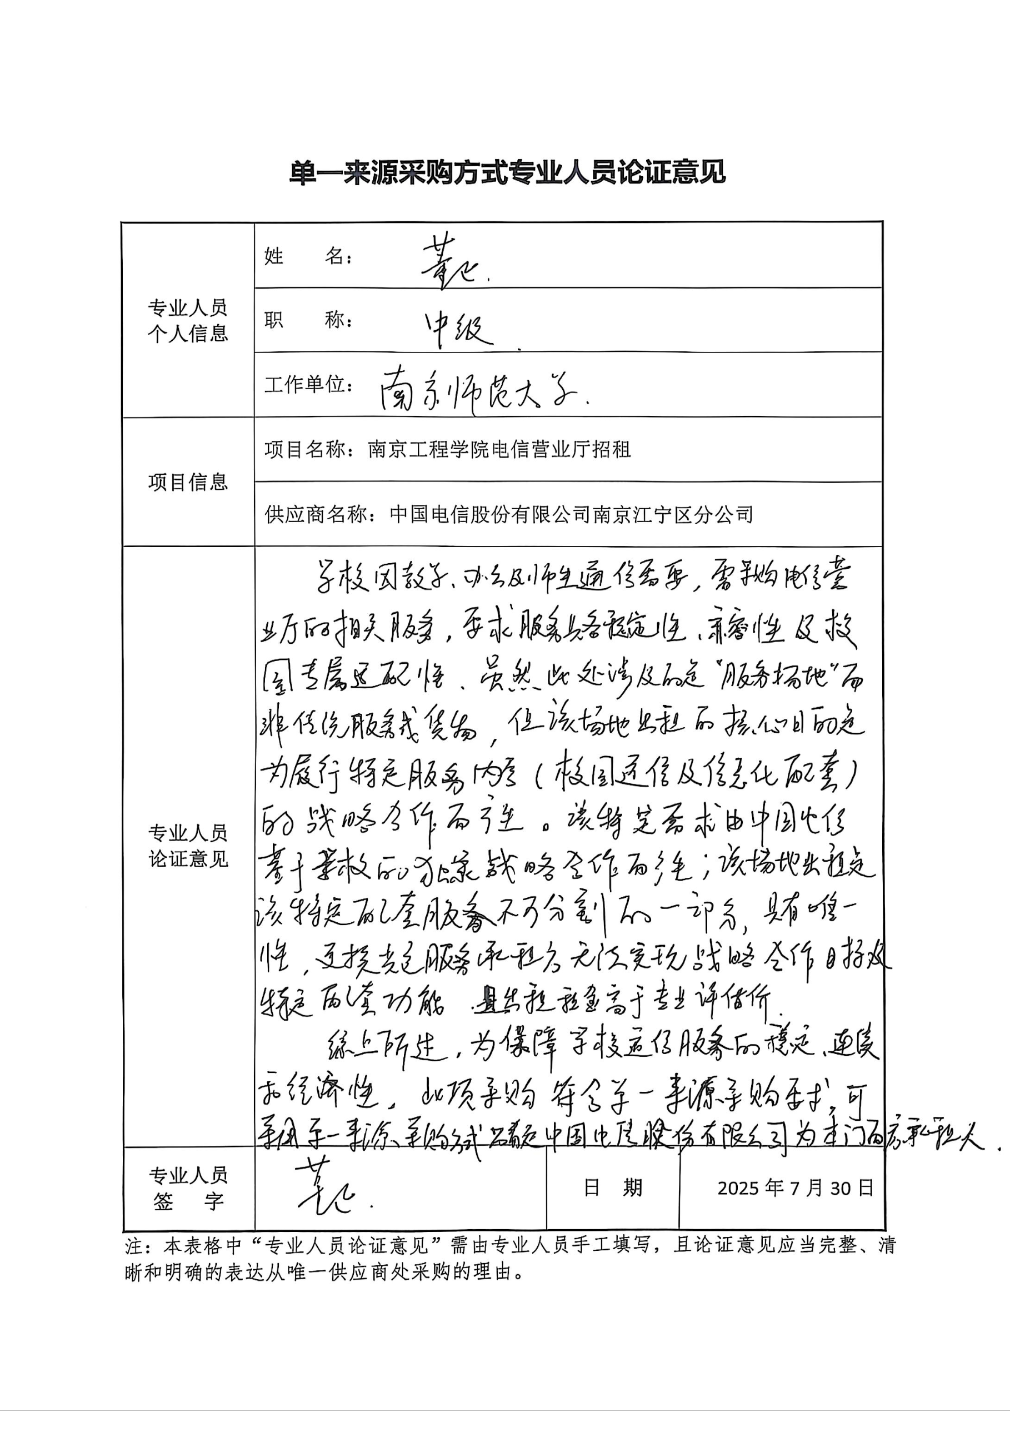 单一来源采购方式专业人员论证意见
专业人员
个人信息
姓 名：董
职 称：中级
工作单位：南京师范大学.
项目信息
项目名称：南京工程学院电信营业厅招租
供应商名称：中国电信股份有限公司南京江宁区分公司
专业人员
论证意见
学校因教学、办公及师生通信需要，需采购电信营
业厅的相关服务，要求服务具备稳定性、兼容性及校
园专属适配性、虽然此处涉及的是“服务场地”而
非传统服务或货物，但该场地出租的核心目的是
为履行特定服务内容（校园通信及信息化配套）
的战略合作而产生。该特定需求由中国电信
基于学校的独家战略合作而产生；该场地出租是
该特定配套服务不可分割的一部分，具有唯一
性，更换其他服务承租方无法实现战略合作目标及
特定配套功能 且出租租金高于专业评估价.
综上所述，为保障学校通信服务的稳定、连续
和经济性，此项采购符合单一来源采购要求，可
采用单一来源采购方式 中国电信股份有限公司为本门面房承租人.
专业人员
签 字
董
日 期
2025 年 7 月 30 日
注：本表格中“专业人员论证意见”需由专业人员手工填写，且论证意见应当完整、清
晰和明确的表达从唯一供应商处采购的理由。